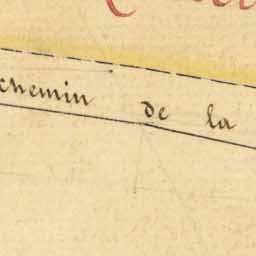 chemin de la